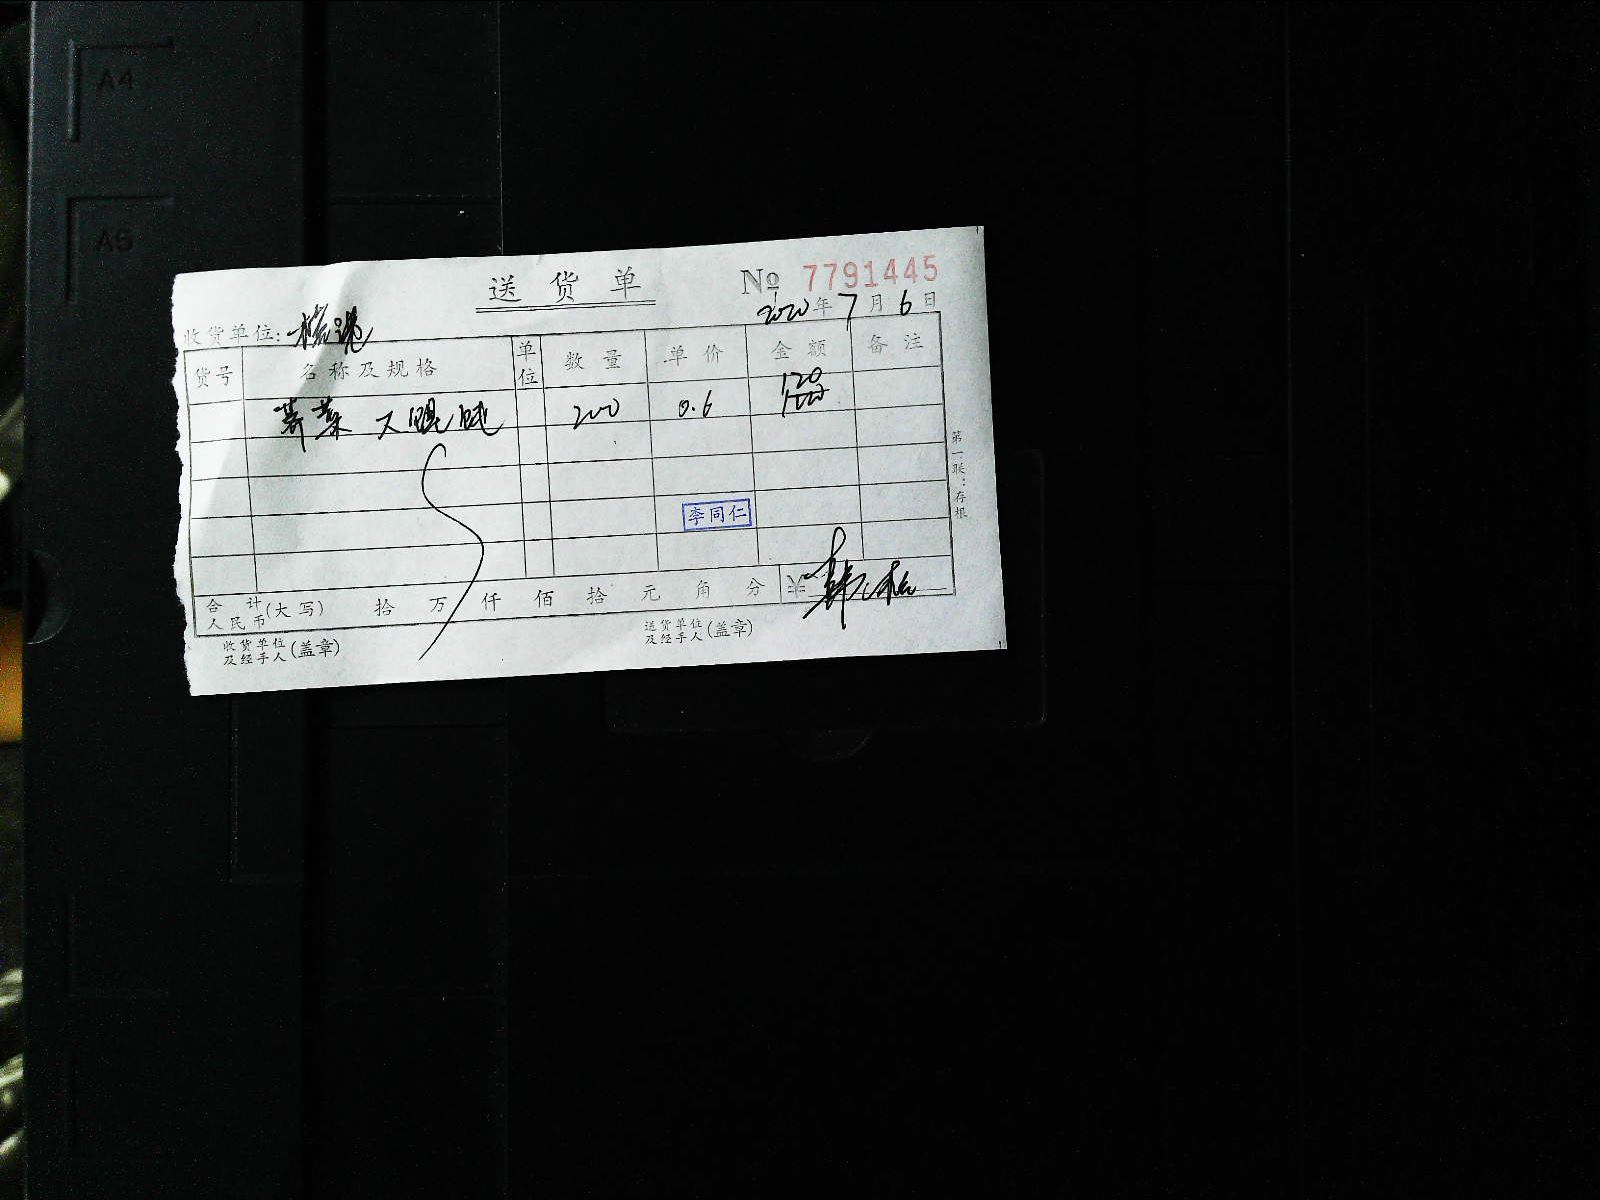 A4
A5
送货单 No 7791445
2020年7月6日
收货单位:
货号 名称及规格 单位 数量 单价 金额 备注
120
荠菜大馄饨 200 0.6
李同仁
第一联:存根
合计人民币(大写) 拾 万 仟 佰 拾 元 角 分
收货单位及经手人(盖章)
送货单位及经手人(盖章)